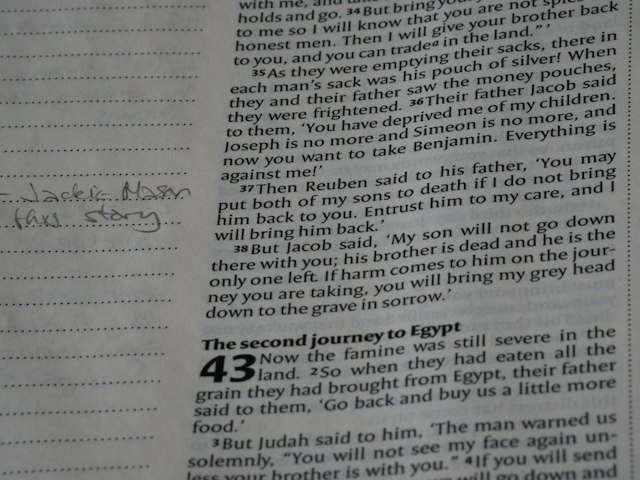 with me, and take
holds and go. 34But bring your
to me so I will know that you are not spies
honest men. Then I will give your brother back
to you, and you can trade a in the land."'
35As they were emptying their sacks, there in
each man's sack was his pouch of silver! When
they and their father saw the money pouches,
they were frightened. 36Their father Jacob said
to them, 'You have deprived me of my children.
Joseph is no more and Simeon is no more, and
now you want to take Benjamin. Everything is
against me!'
37Then Reuben said to his father, 'You may
put both of my sons to death if I do not bring
him back to you. Entrust him to my care, and I
will bring him back.'
38But Jacob said, 'My son will not go down
there with you; his brother is dead and he is the
only one left. If harm comes to him on the jour-
ney you are taking, you will bring my grey head
down to the grave in sorrow.'
- Jackie Mason
this story
The second journey to Egypt
43 Now the famine was still severe in the
land. 2So when they had eaten all the
grain they had brought from Egypt, their father
said to them, 'Go back and buy us a little more
food.'
3But Judah said to him, 'The man warned us
solemnly, "You will not see my face again un-
less your brother is with you." 4If you will send
will go down and